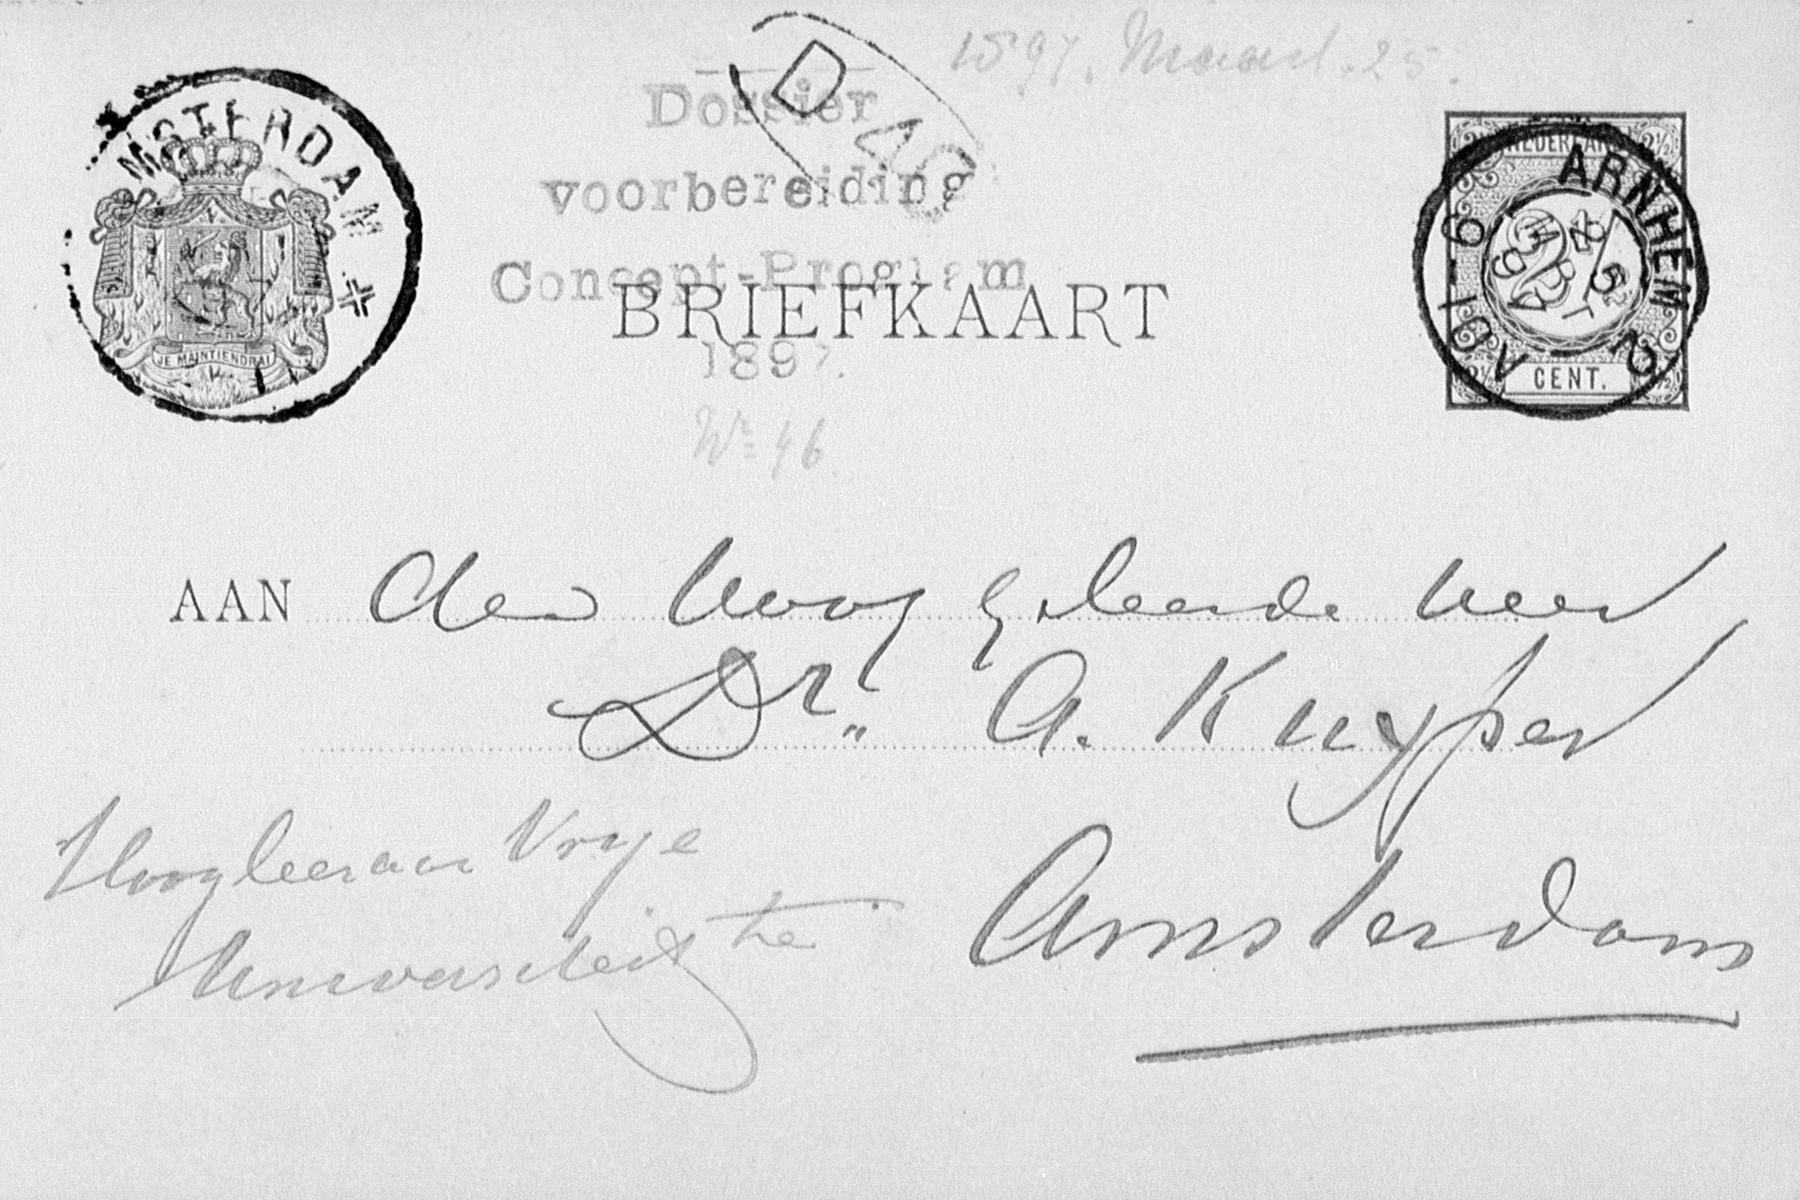 1897. Maart. 25.
Dossier
voorbereiding
Concept-Program
1897.
Nr. 46.
AMSTERDAM
JE MAINTIENDRAI
BRIEFKAART
NEDERLAND
2½ 2½
ARNHEM
CENT.
AAN den hoog geleerde heer
Dr. A. Kuyper
Amsterdam
Hoogleeraar Vrye
Universiteit te